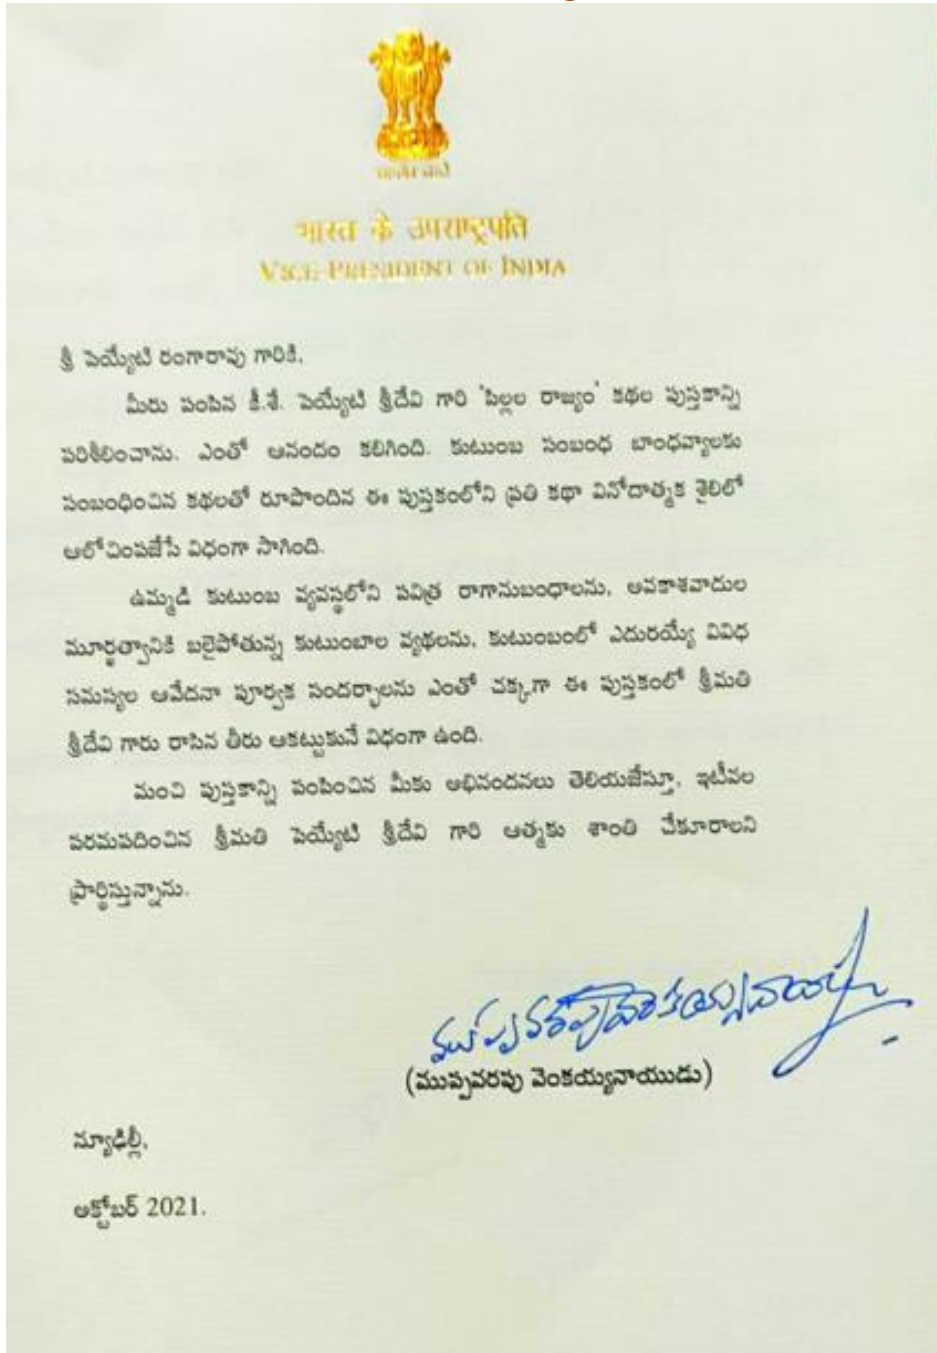 सत्यमेव जयते
भारत के उपराष्ट्रपति
VICE-PRESIDENT OF INDIA
శ్రీ పెయ్యేటి రంగారావు గారికి,
మీరు పంపిన కీ.శే. పెయ్యేటి శ్రీదేవి గారి 'పిల్లల రాజ్యం' కథల పుస్తకాన్ని
పరిశీలించాను. ఎంతో ఆనందం కలిగింది. కుటుంబ సంబంధ బాంధవ్యాలకు
సంబంధించిన కథలతో రూపొందిన ఈ పుస్తకంలోని ప్రతి కథా వినోదాత్మక శైలిలో
ఆలోచింపజేసే విధంగా సాగింది.
ఉమ్మడి కుటుంబ వ్యవస్థలోని పవిత్ర రాగానుబంధాలను, అవకాశవాదుల
మూర్ఖత్వానికి బలైపోతున్న కుటుంబాల వ్యథలను, కుటుంబంలో ఎదురయ్యే వివిధ
సమస్యల ఆవేదనా పూర్వక సందర్భాలను ఎంతో చక్కగా ఈ పుస్తకంలో శ్రీమతి
శ్రీదేవి గారు రాసిన తీరు ఆకట్టుకునే విధంగా ఉంది.
మంచి పుస్తకాన్ని పంపించిన మీకు అభినందనలు తెలియజేస్తూ, ఇటీవల
పరమపదించిన శ్రీమతి పెయ్యేటి శ్రీదేవి గారి ఆత్మకు శాంతి చేకూరాలని
ప్రార్థిస్తున్నాను.
ముప్పవరపు వెంకయ్యనాయుడు
(ముప్పవరపు వెంకయ్యనాయుడు)
న్యూఢిల్లీ,
అక్టోబర్ 2021.